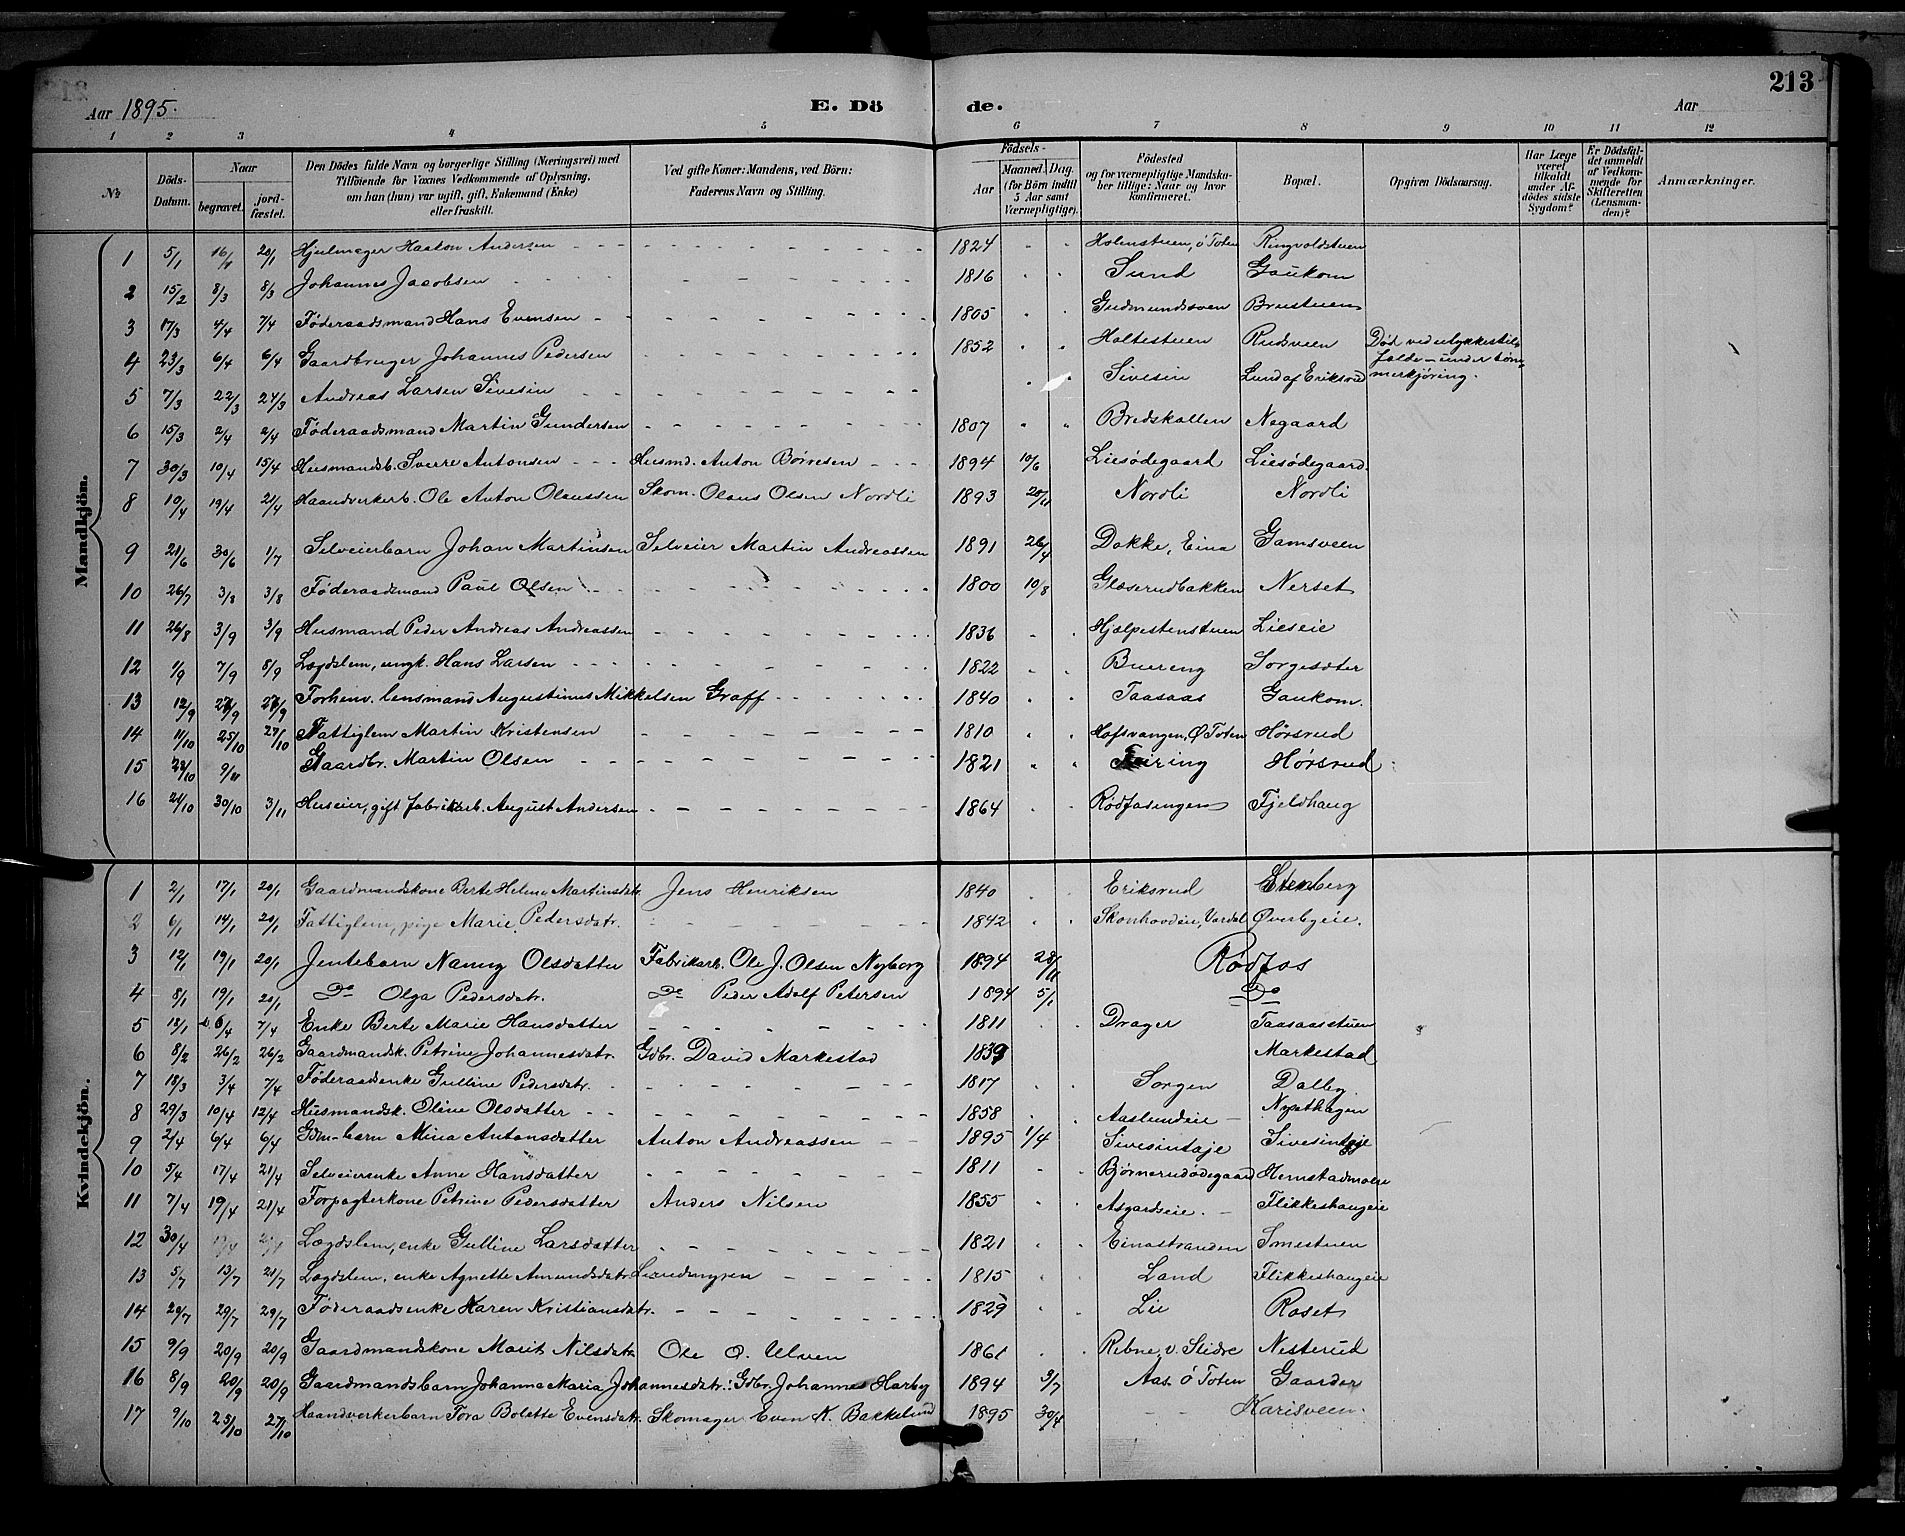 213
Aar 1895. E. Dö de. Aar
1 2 3 4 5 6 7 8 9 10 11 12
№ Döds-Datum. Naar begravet. jordfæstet. Den Dödes fulde Navn og borgerlige Stilling (Næringsvei) med Tilföiende for Voxnes Vedkommende af Oplysning, om han (hun) var ugift, gift, Enkemand (Enke) eller fraskilt. Ved gifte Koner: Mandens, ved Börn: Faderens Navn og Stilling. Födsels- Aar Maaned. Dag. (for Börn indtil 5 Aar samt Værnepligtige). Födested og for værnepligtige Mandskaber tillige: Naar og hvor konfirmeret. Bopæl. Opgiven Dödsaarsag. Har Læge været tilkaldt under Afdödes sidste Sygdom? Er Dödsfaldet anmeldt af Vedkommende for Skifteretten (Lensmanden)? Anmærkninger.
Mandkjön.
1 5/1 16/1 20/1 Hjulmager Haaton Andersen 1824 Holmstuen, ö Toten Ringvoldstuen
2 15/2 8/3 8/3 Johannes Jacobsen 1816 Sund Gaukom
3 17/3 4/4 7/4 Føderaadsmand Hans Evensen 1805 Gudmundsven Brustuen
4 23/3 6/4 6/4 Gaardbruger Johannes Pedersen 1852 Holtestuen Rudsveen Død ved ulykkestilfælde - under tømmerkjøring.
5 7/3 22/3 24/3 Andreas Larsen Sivesin Sivesin Lund af Eriksrud
6 15/3 2/4 2/4 Føderaadsmand Martin Gundersen 1807 Bredskallen Negaard
7 30/3 10/4 15/4 Husmandsb. Sverre Antonsen Husmd. Anton Børresen 1894 10/6 Liesødegaard Liesødegaard
8 10/4 19/4 21/4 Haandverkerb. Ole Anton Olaussen Skom. Olaus Olsen Nordli 1893 20/11 Nordli Nordli
9 21/6 30/6 1/7 Selveierbarn Johan Martinsen Selveier Martin Andreassen 1891 26/4 Dokke, Eina Gamsveen
10 26/7 3/8 3/8 Føderaadsmand Paul Olsen 1800 10/8 Glæserudbakken Nerset
11 26/8 3/9 3/9 Husmand Peder Andreas Andreassen 1836 Hjælpestenstuen Lieseie
12 1/9 7/9 8/9 Lægdslem, ungk. Hans Larsen 1822 Buereng Sorgesæter
13 12/9 27/9 27/9 Forhenv. lensmand Augustinus Mikkelsen Graff 1840 Taasaas Gaukom.
14 11/10 25/10 27/10 Fattiglem Martin Kristensen 1810 Hofsvangen, Ø Toten Hørsrud
15 23/10 9/11 Gaardbr. Martin Olsen 1821 Feiring Hørsrud
16 21/10 30/10 3/11 Huseier, gift fabrikarb. August Andersen 1864 Rødfosengen Fjeldhaug
Kvindekjön.
1 2/1 17/1 20/1 Gaardmandskone Berte Helene Martinsdatr. Jens Henriksen 1840 Eriksrud Stenberg
2 6/1 14/1 20/1 Fattiglem, pige Marie Pedersdatr. 1842 Skonhovdeie, Vardal Øverbyeie.
3 12/1 19/1 20/1 Jentebarn Nanny Olsdatter Fabrikarb. Ole J. Olsen Nyborg 1894 28/11 Rødfos
4 8/1 19/1 20/1 Do Olga Pedersdatr. Do Peder Adolf Petersen 1894 5/1 Do
5 18/1 6/4 7/4 Enke Berte Marie Hansdatter 1811 Drager Taasaasstuen
6 8/2 26/2 26/2 Gaardmandsk. Petrine Johannesdatr. Gdbr. David Markestad 1839 Markestad
7 18/3 3/4 7/4 Føderaadsenke Gulline Pedersdatr. 1817 Sorgen Dalby
8 29/3 10/4 12/4 Husmandsk. Oline Olsdatter 1858 Aaslundeie Nysethagen
9 2/4 6/4 6/4 Gdm-barn Mina Antonsdatter Anton Andreassen 1895 1/4 Sivesintaje Sivesintaje
10 5/4 17/4 21/4 Selveierenke Anne Hansdatter 1811 Bjørnerudødegaard Hemstadmoeie
11 7/4 19/4 21/4 Forpagterkone Petrine Pedersdatter Anders Nilsen 1855 Asgardseie. Flikkeshaugeie
12 30/4 Lægdslem, enke Gulline Larsdatter 1821 Einastranden Smestuen
13 5/7 13/7 21/7 Lægdslem, enke Agnette Amundsdatr. Lundmyren 1815 Land Flikkeshaugeie
14 20/7 29/7 29/7 Føderaadsenke Karen Kristiansdatr. 1829 Lie Roset
15 9/9 20/9 20/9 Gaardmandskone Marit Nilsdatr. Ole O. Ulven 1861 Rebne, v. Slidre Nesterud
16 8/9 20/9 20/9 Gaardmandsbarn Johanna Maria Johannesdatr. Gdbr. Johannes Harby 1894 3/7 Aas ö Toten Gaarder
17 9/10 25/10 27/10 Haandverkerbarn Tora Bolette Evensdatr. Skomager Even K. Bakkelund 1895 30/4 Karisveen.